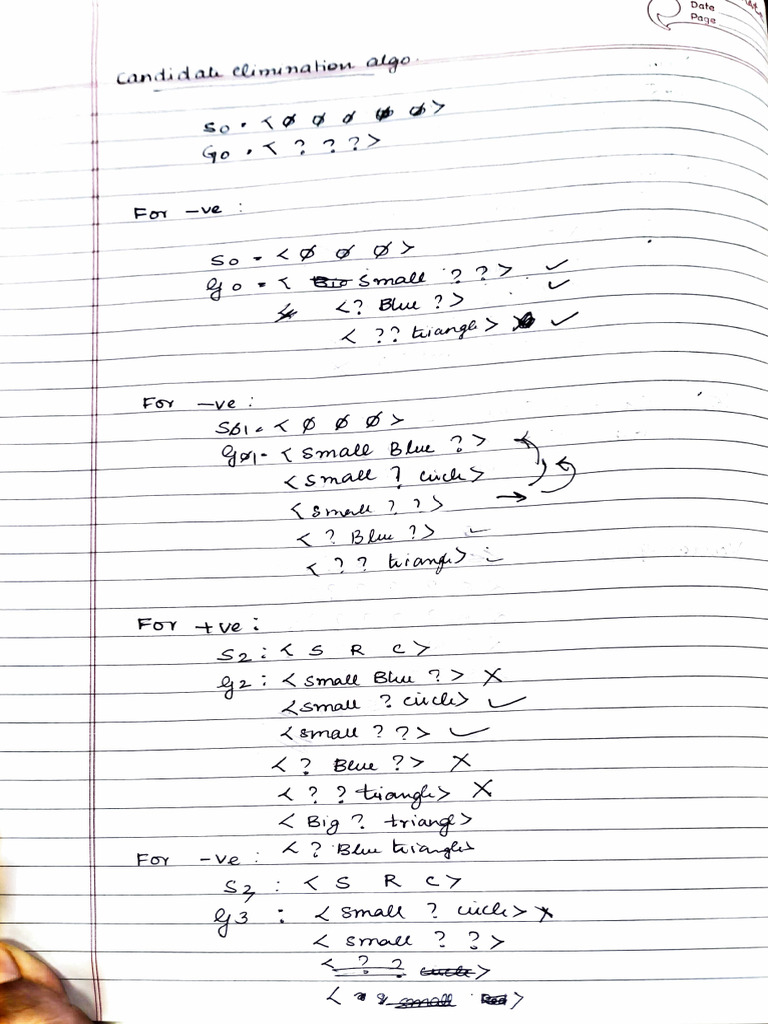 Date
Page
Candidate elimination algo.
S0 = < ø ø ø ø ø >
G0 = < ? ? ? >
For -ve :
S0 = < ø ø ø >
G0 = < Small ? ? > ✓
< ? Blue ? > ✓
< ? ? triangle > ✓
For -ve :
S1 = < ø ø ø >
G1 = < Small Blue ? >
< Small ? circle >
< Small ? ? > →
< ? Blue ? >
< ? ? triangle >
For +ve :
S2 : < S R C >
G2 : < Small Blue ? > X
< Small ? circle > ✓
< Small ? ? > ✓
< ? Blue ? > X
< ? ? triangle > X
< Big ? triangle >
< ? Blue triangle >
For -ve :
S3 : < S R C >
G3 : < Small ? circle > x
< Small ? ? >
< ? ? circle >
< small >